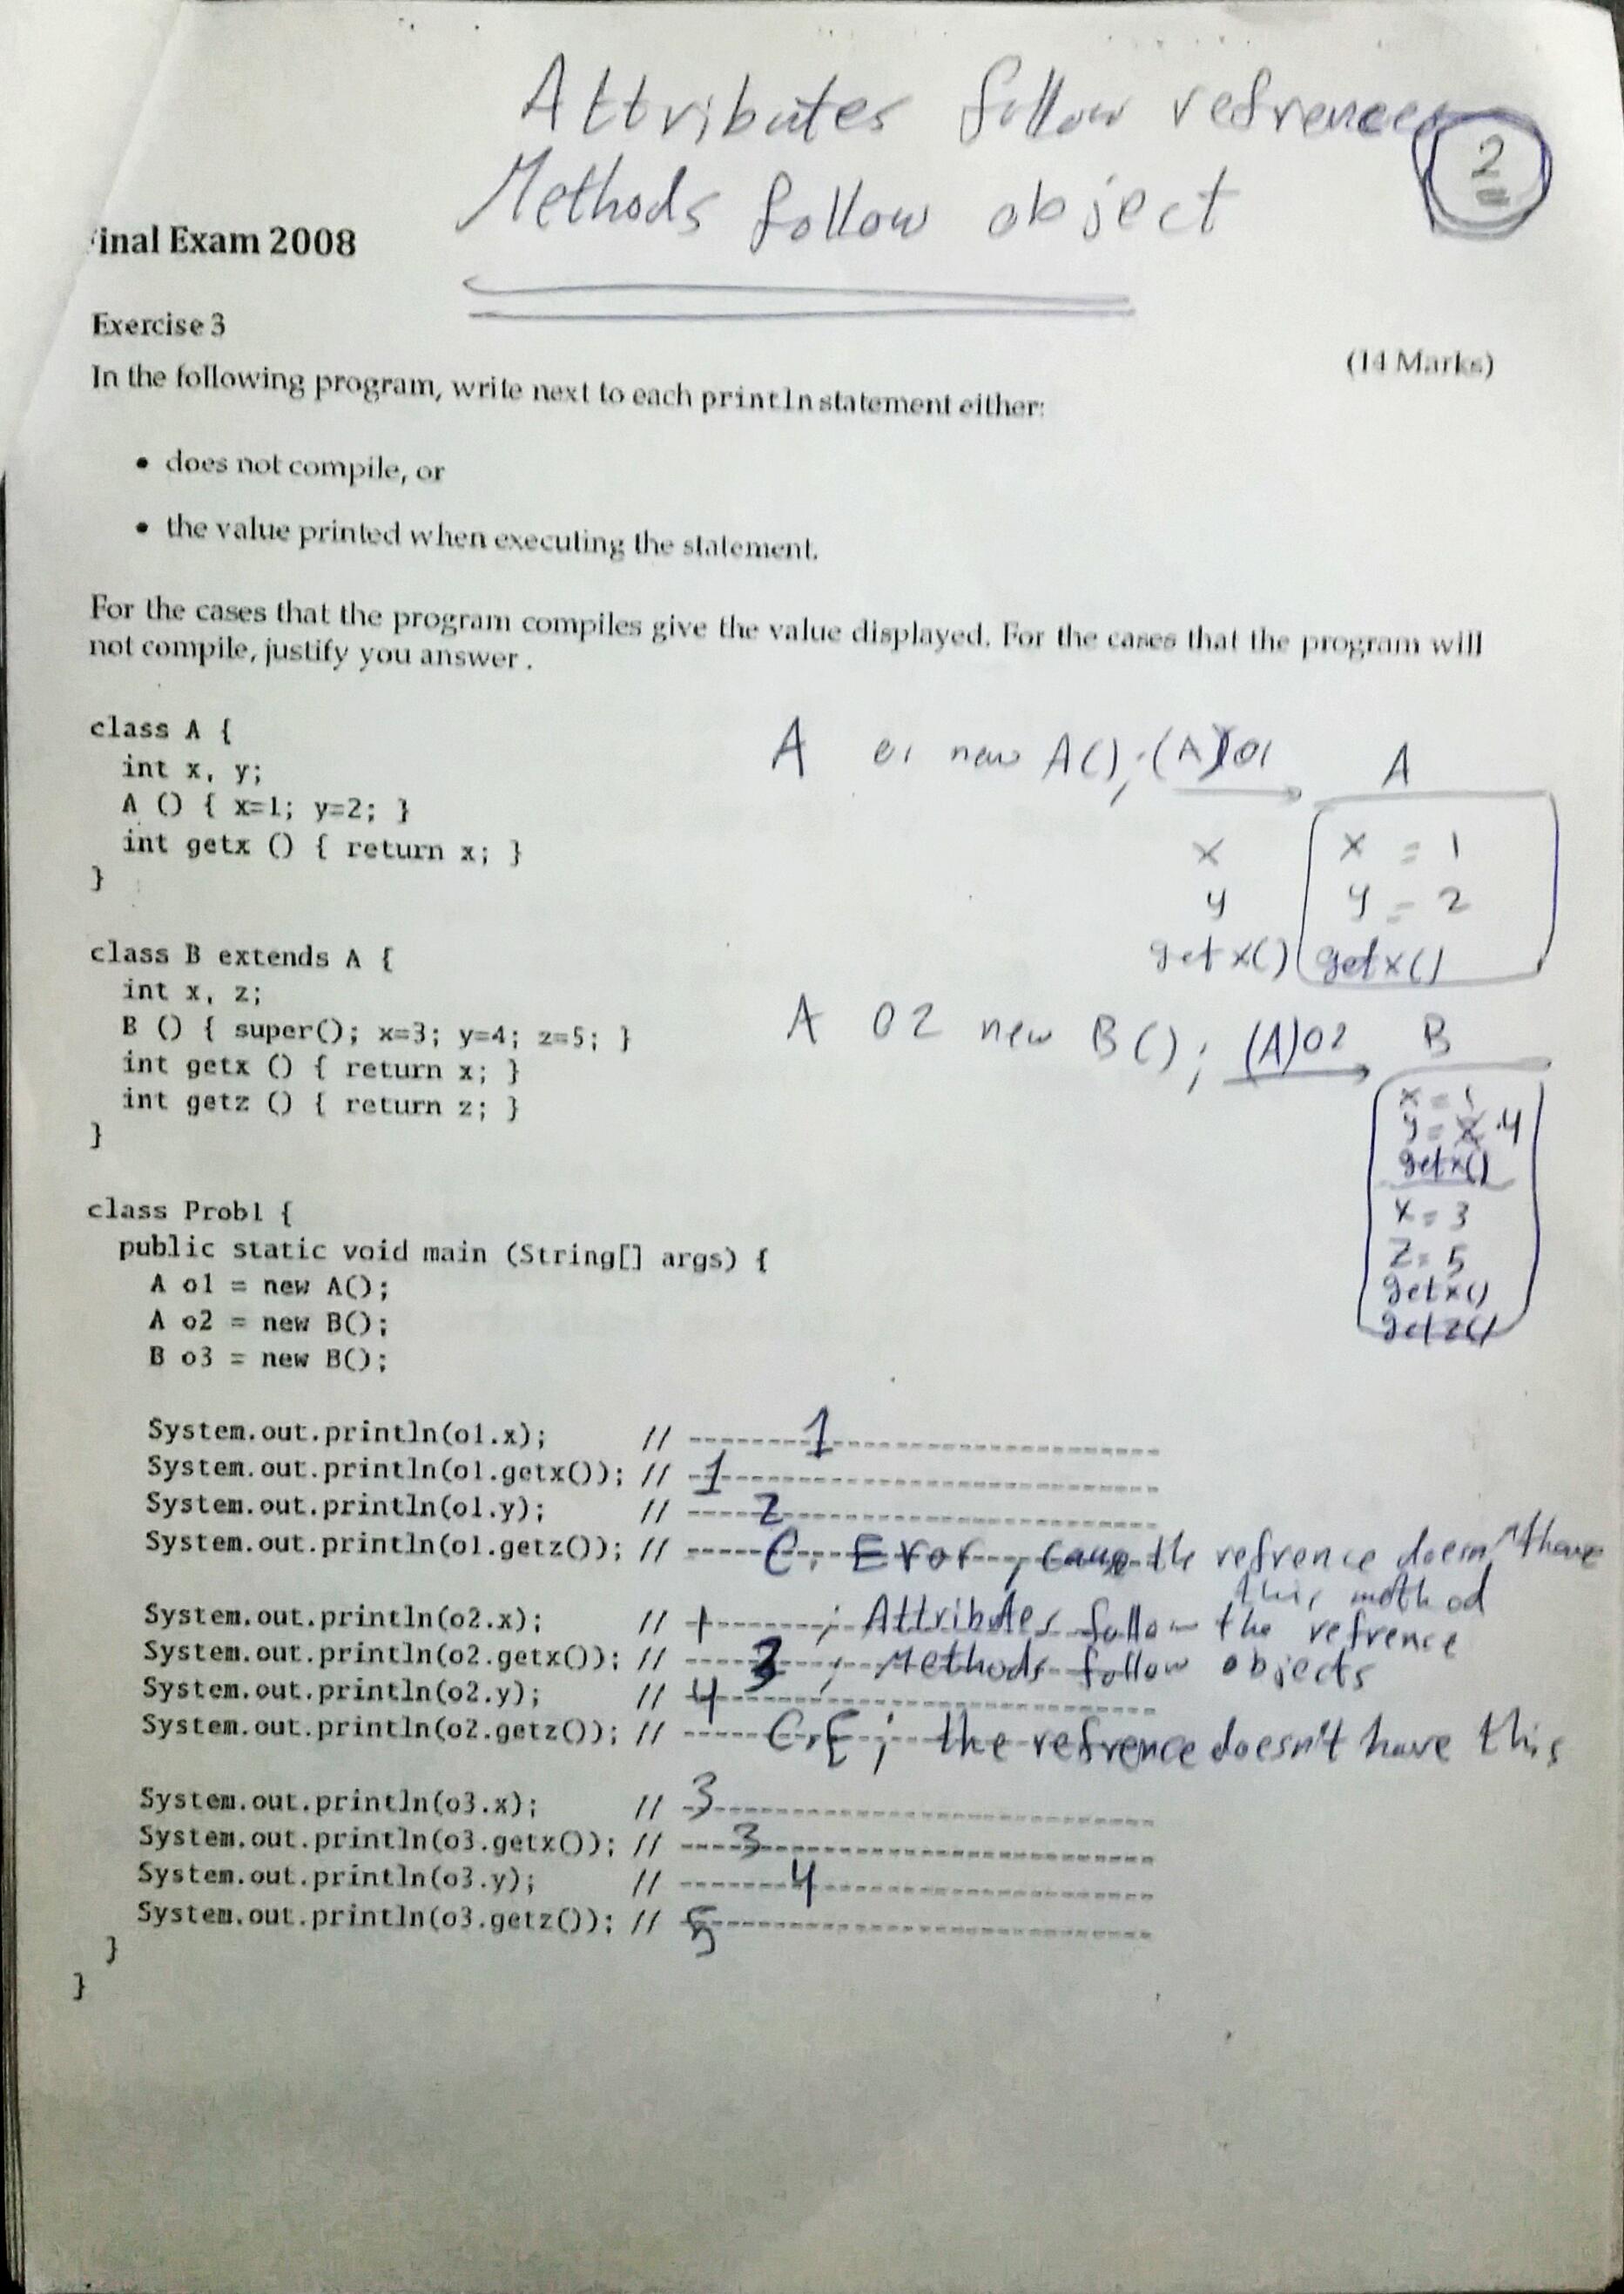 Attributes follow refrences
2
Methods follow object
inal Exam 2008
Exercise 3
(14 Marks)
In the following program, write next to each println statement either:
• does not compile, or
• the value printed when executing the statement.
For the cases that the program compiles give the value displayed. For the cases that the program will
not compile, justify you answer .
class A {
int x, y;
A () { x=1; y=2; }
int getx () { return x; }
}
A o1 new A(); (A)o1
A
x x = 1
y y = 2
getx() getx()
class B extends A {
int x, z;
B () { super(); x=3; y=4; z=5; }
int getx () { return x; }
int getz () { return z; }
}
A O2 new B(); (A)O2
B
x = 1
y = 2 4
getx()
x = 3
z = 5
getx()
getz()
class Prob1 {
public static void main (String[] args) {
A o1 = new A();
A o2 = new B();
B o3 = new B();
System.out.println(o1.x); // 1
System.out.println(o1.getx()); // 1
System.out.println(o1.y); // 2
System.out.println(o1.getz()); // C. Eror , cause the refrence doesn't have
this method
System.out.println(o2.x); // 1 ; Attributes follow the refrence
System.out.println(o2.getx()); // 3 ; Methods follow objects
System.out.println(o2.y); // 4
System.out.println(o2.getz()); // C.E ; the refrence doesn't have this
System.out.println(o3.x); // 3
System.out.println(o3.getx()); // 3
System.out.println(o3.y); // 4
System.out.println(o3.getz()); // 5
}
}